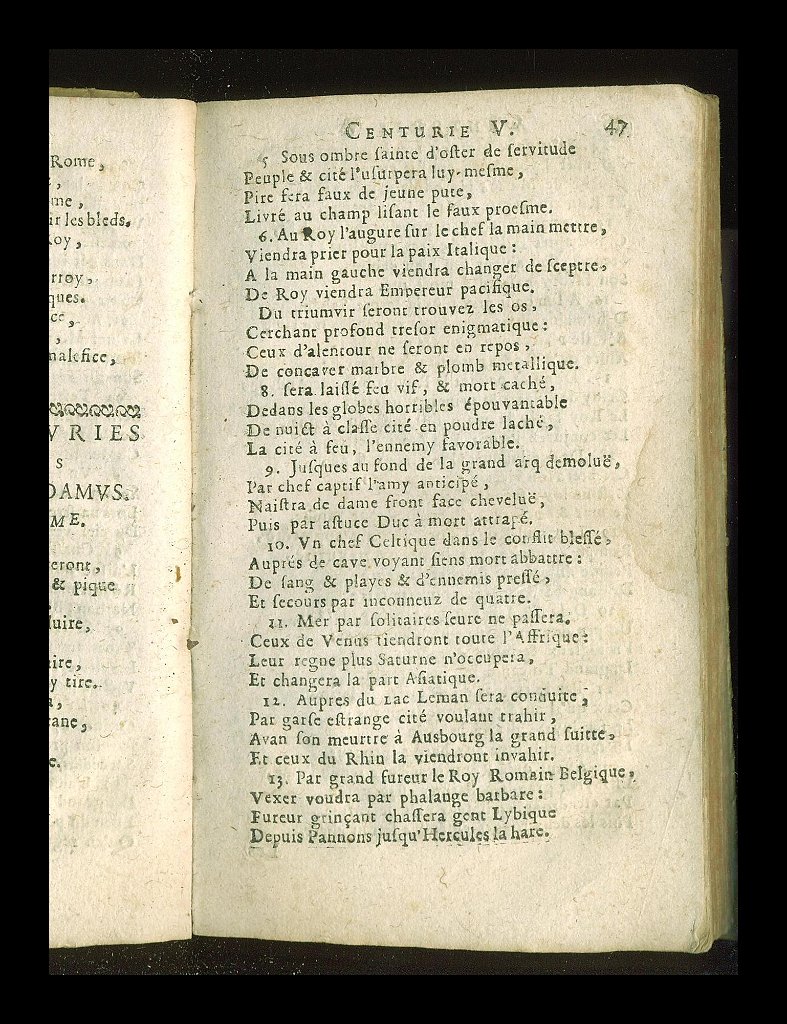 Rome,
,
me,
ir les bleds.
Roy,
rroy,
ques.
ce,
,
malefice,
VRIES
S
DAMVS.
ME.
eront,
& pique
ſuire,
aire,
y tire.
a,
cane,
e.
CENTURIE V. 47
5 Sous ombre ſainte d'oſter de ſervitude
Peuple & cité l'uſurpera luy-meſme,
Pire fera faux de jeune pute,
Livré au champ liſant le faux proeſme.
6. Au Roy l'augure ſur le chef la main mettre,
Viendra prier pour la paix Italique:
A la main gauche viendra changer de ſceptre,
De Roy viendra Empereur pacifique.
Du triumvir ſeront trouvez les os,
Cerchant profond treſor enigmatique:
Ceux d'alentour ne ſeront en repos,
De concaver marbre & plomb metallique.
8. ſera laiſſé feu vif, & mort caché,
Dedans les globes horribles épouvantable
De nuict à claſſe cité en poudre laché,
La cité à feu, l'ennemy favorable.
9. Juſques au fond de la grand arq demoluë,
Par chef captif l'amy anticipé,
Naiſtra de dame front face cheveluë,
Puis par aſtuce Duc à mort attrapé.
10. Vn chef Celtique dans le conflit bleſſé,
Auprés de cave voyant ſiens mort abbattre:
De ſang & playes & d'ennemis preſſé,
Et ſecours par inconneuz de quatre.
11. Mer par ſolitaires ſeure ne paſſera,
Ceux de Venus tiendront toute l'Affrique:
Leur regne plus Saturne n'occupera,
Et changera la part Aſiatique.
12. Aupres du Lac Leman ſera conduite,
Par garſe eſtrange cité voulant trahir,
Avan ſon meurtre à Ausbourg la grand ſuitte,
Et ceux du Rhin la viendront invahir.
13. Par grand fureur le Roy Romain Belgique,
Vexer voudra par phalange barbare:
Fureur grinçant chaſſera gent Lybique
Depuis Pannons juſqu'Hercules la hare.